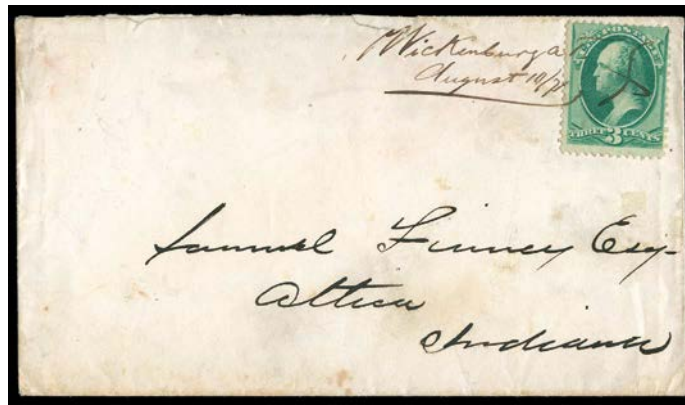 Wickenburg a
August 10/
U.S. POSTAGE
THREE 3 CENTS
Samuel Finney Esq-
Attica
Indiana